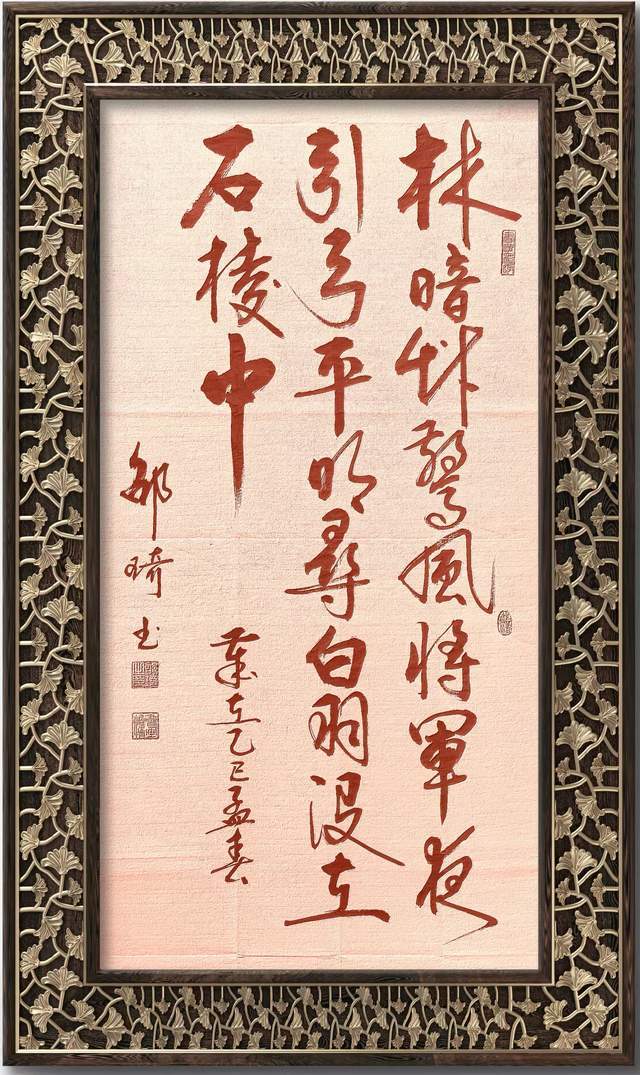 林暗艸驚風將軍夜
引弓平明尋白羽沒在
石棱中
歲在乙巳孟春
琦书